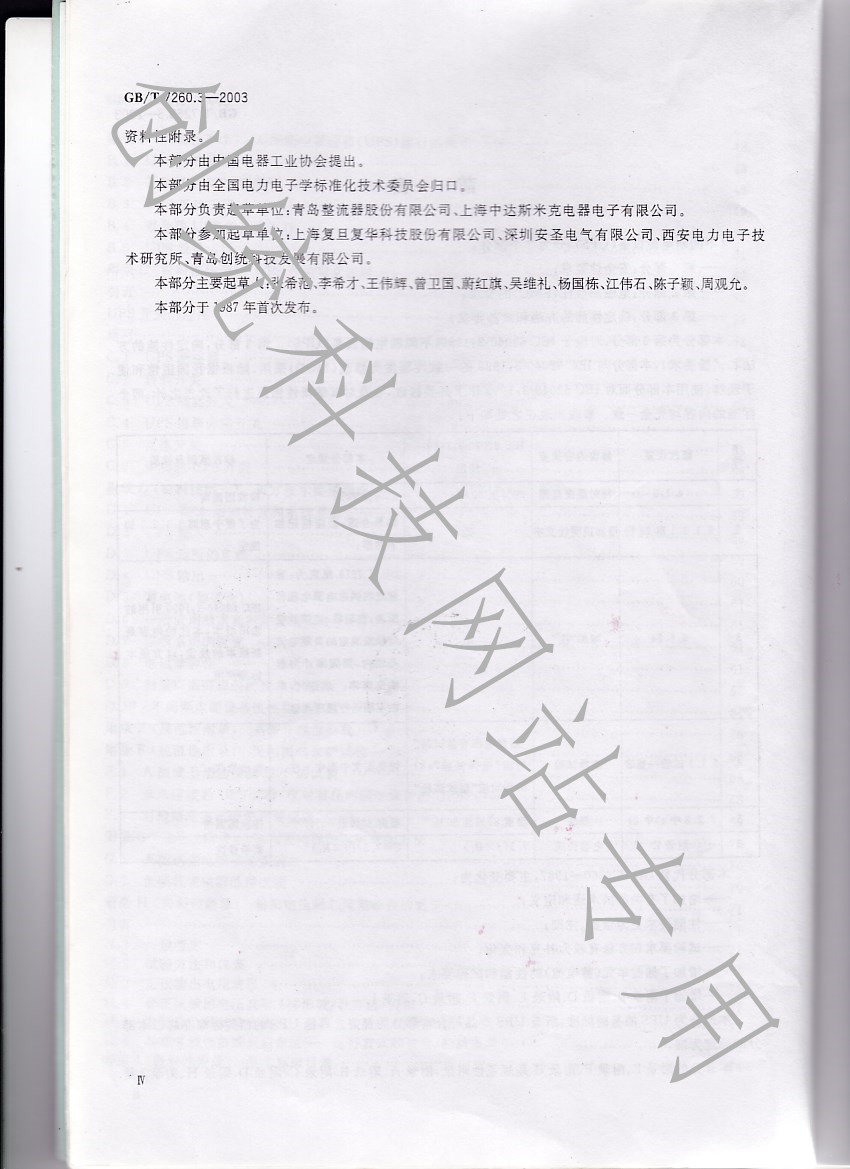 GB/T 7260.3—2003
资料性附录。
本部分由中国电器工业协会提出。
本部分由全国电力电子学标准化技术委员会归口。
本部分负责起草单位:青岛整流器股份有限公司、上海中达斯米克电器电子有限公司。
本部分参加起草单位:上海复旦复华科技股份有限公司、深圳安圣电气有限公司、西安电力电子技
术研究所、青岛创统科技发展有限公司。
本部分主要起草人:张希范、李希才、王伟辉、曾卫国、蔚红旗、吴维礼、杨国栋、江伟石、陈子颖、周观允。
本部分于1987年首次发布。
创统科技网站专用
Ⅳ